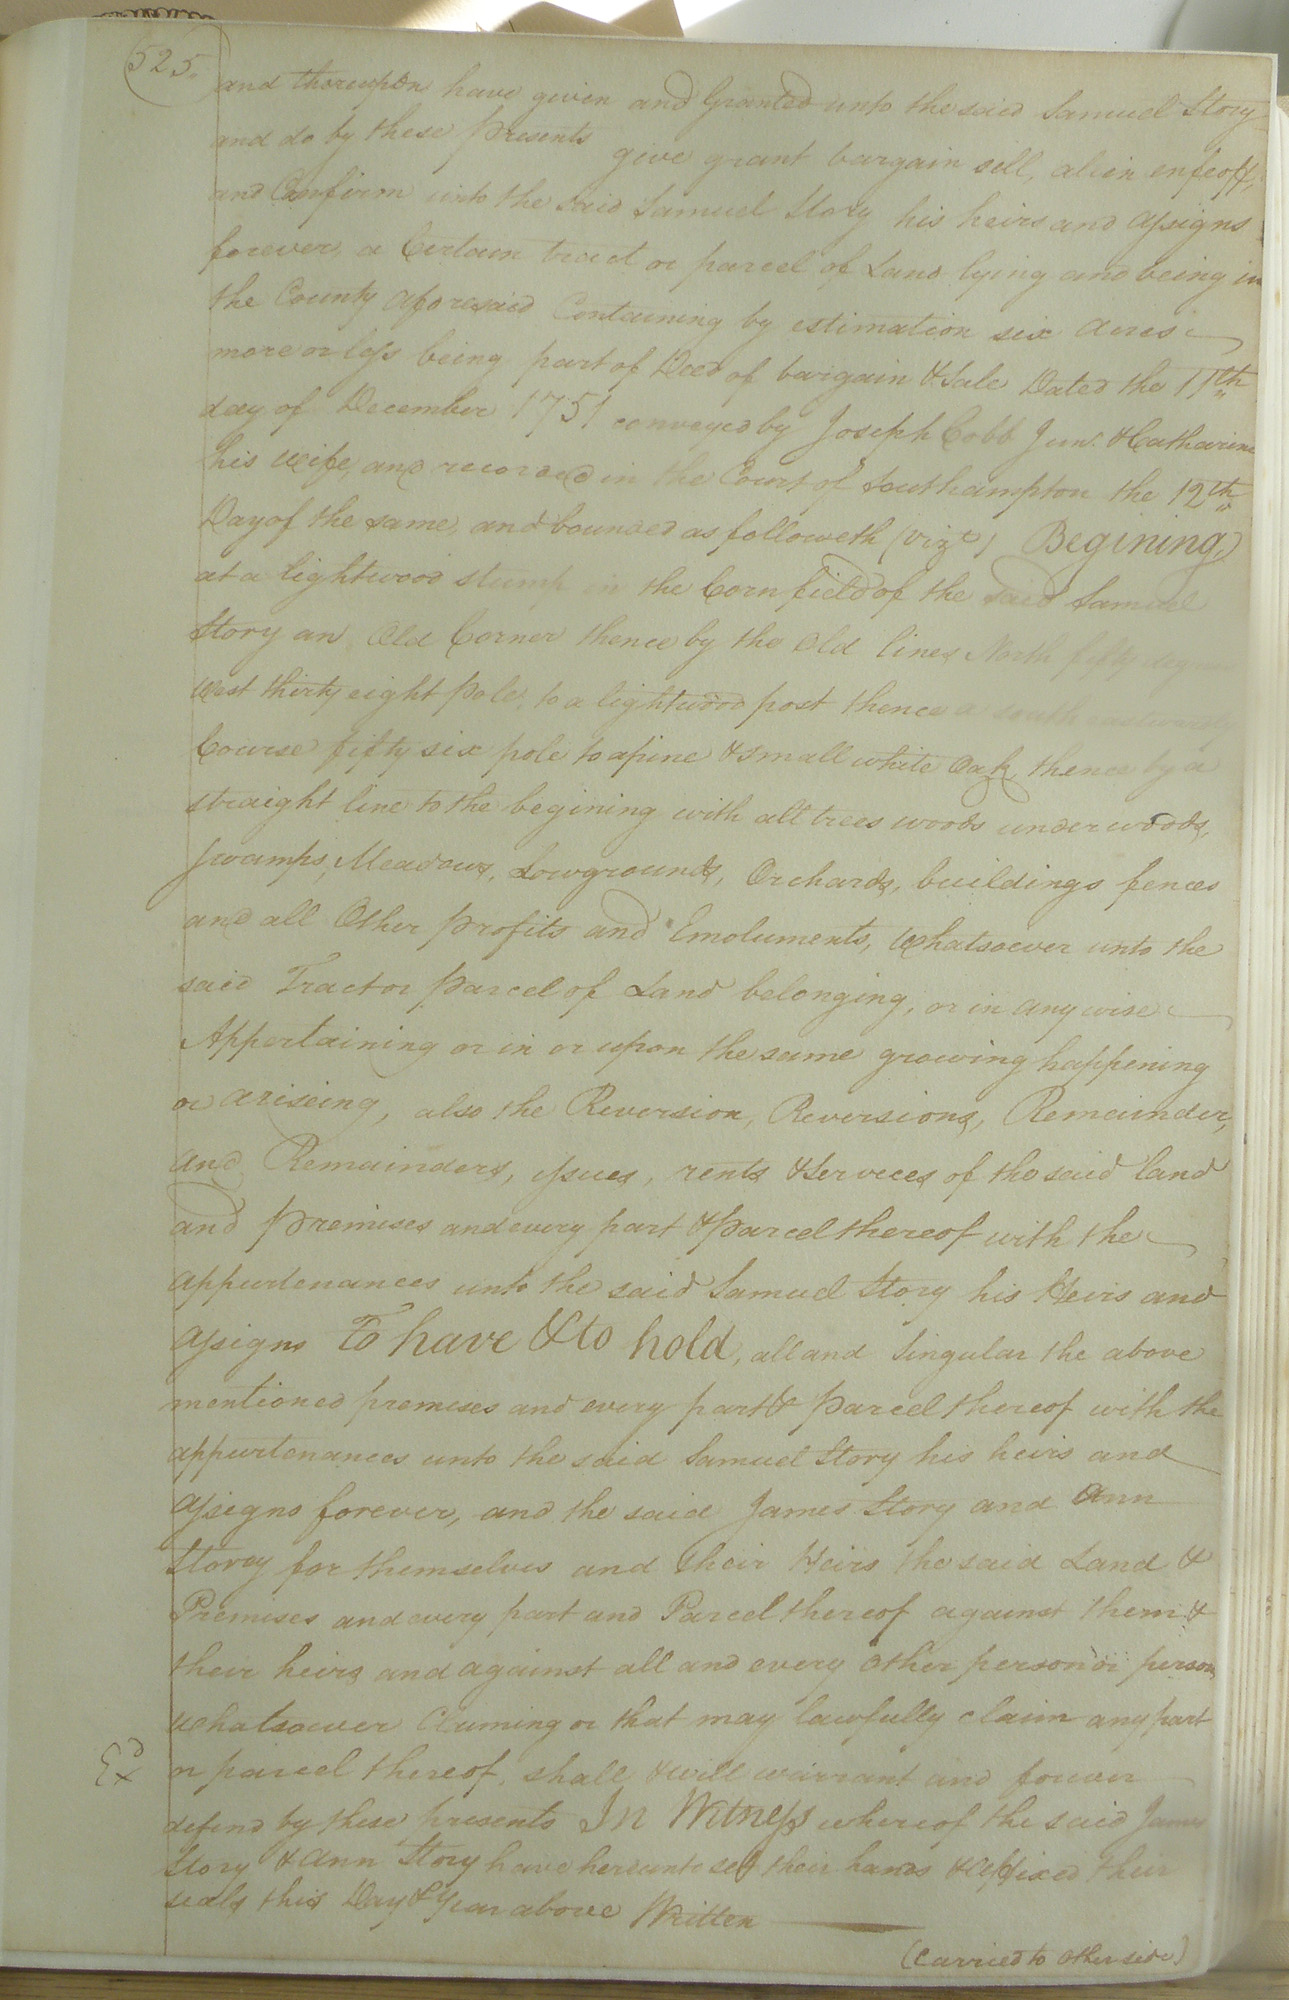 525.
and thereupon have given and Granted unto the said Samuel Story
and do by these Presents give grant bargain sell, alien enfeoff,
and Confirm unto the said Samuel Story his heirs and assigns
forever, a Certain tract or parcel of Land lying and being in
the County aforesaid Containing by estimation six acres
more or less being part of Deed of bargain & Sale Dated the 11th
day of December 1751 conveyed by Joseph Cobb Junr. & Catharine
his wife, and recorded in the Court of Southampton the 12th
Day of the same, and bounded as followeth (vizt) Begining,
at a lightwood stump in the Corn field of the said Samuel
Story an Old Corner thence by the old lines North fifty degrees
west thirty eight pole, to a lightwood post thence a south eastwardly
Course fifty six pole to a pine & small white Oak, thence by a
straight line to the begining with all trees woods underwoods,
swamps, Meadows, Lowgrounds, Orchards, buildings fences
and all Other profits and Emoluments, whatsoever unto the
said Tract or parcel of Land belonging, or in any wise
Appertaining or in or upon the same growing happening
or ariseing, also the Reversion, Reversions, Remainder,
and Remainders, issues, rents & Services of the said land
and premises and every part & parcel thereof with the
appurtenances unto the said Samuel Story his Heirs and
assigns To have & to hold, all and Singular the above
mentioned premises and every part & parcel thereof with the
appurtenances unto the said Samuel Story his heirs and
assigns forever, and the said James Story and Ann
Storey for themselves and their Heirs the said Land &
Premises and every part and Parcel thereof against them &
their heirs and against all and every other person or persons
whatsoever Claiming or that may lawfully claim any part
or parcel thereof, shall & will warrant and forever
defend by these presents In Witness whereof the said James
Story & Ann Story have hereunto set their hands & affixed their
seals this Day & Year above Written
Exd
(carried to other side)